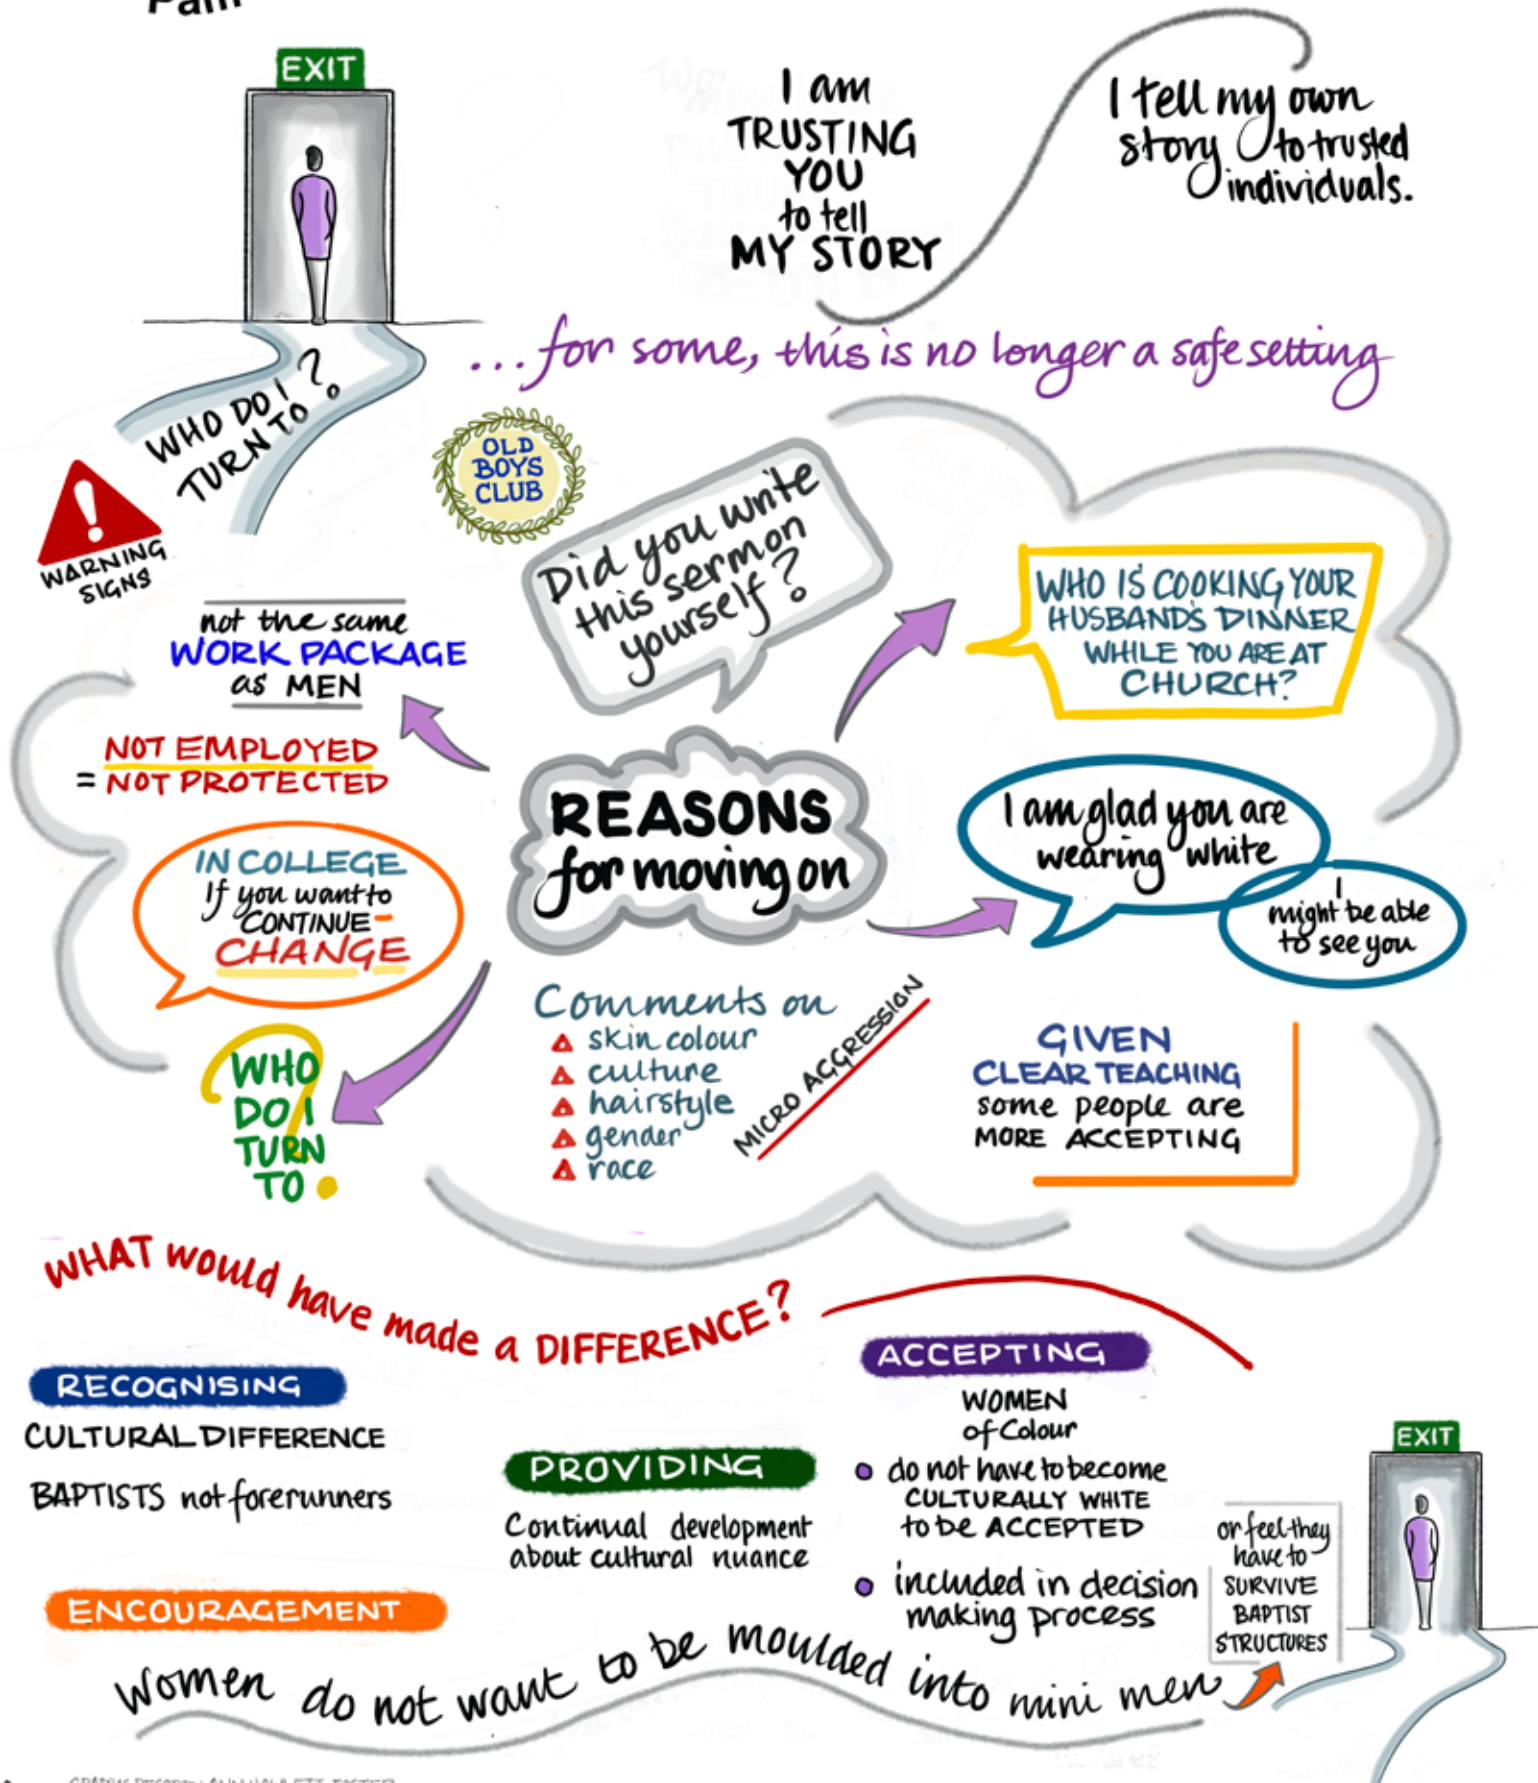 EXIT
I am
TRUSTING
YOU
to tell
MY STORY
I tell my own
story to trusted
individuals.
...for some, this is no longer a safe setting
WHO DO I
TURN TO?
WARNING
SIGNS
OLD
BOYS
CLUB
Did you write
this sermon
yourself?
WHO IS COOKING YOUR
HUSBANDS DINNER
WHILE YOU ARE AT
CHURCH?
not the same
WORK PACKAGE
as MEN
NOT EMPLOYED
= NOT PROTECTED
IN COLLEGE
If you want to
CONTINUE -
CHANGE
REASONS
for moving on
I am glad you are
wearing white
I
might be able
to see you
WHO
DO I
TURN
TO
?
Comments on
skin colour
culture
hairstyle
gender
race
MICRO AGGRESSION
GIVEN
CLEAR TEACHING
some people are
MORE ACCEPTING
WHAT would have made a DIFFERENCE?
RECOGNISING
CULTURAL DIFFERENCE
BAPTISTS not forerunners
PROVIDING
Continual development
about cultural nuance
ACCEPTING
WOMEN
of Colour
do not have to become
CULTURALLY WHITE
to be ACCEPTED
included in decision
making process
ENCOURAGEMENT
Women do not want to be moulded into mini men
or feel they
have to
SURVIVE
BAPTIST
STRUCTURES
EXIT